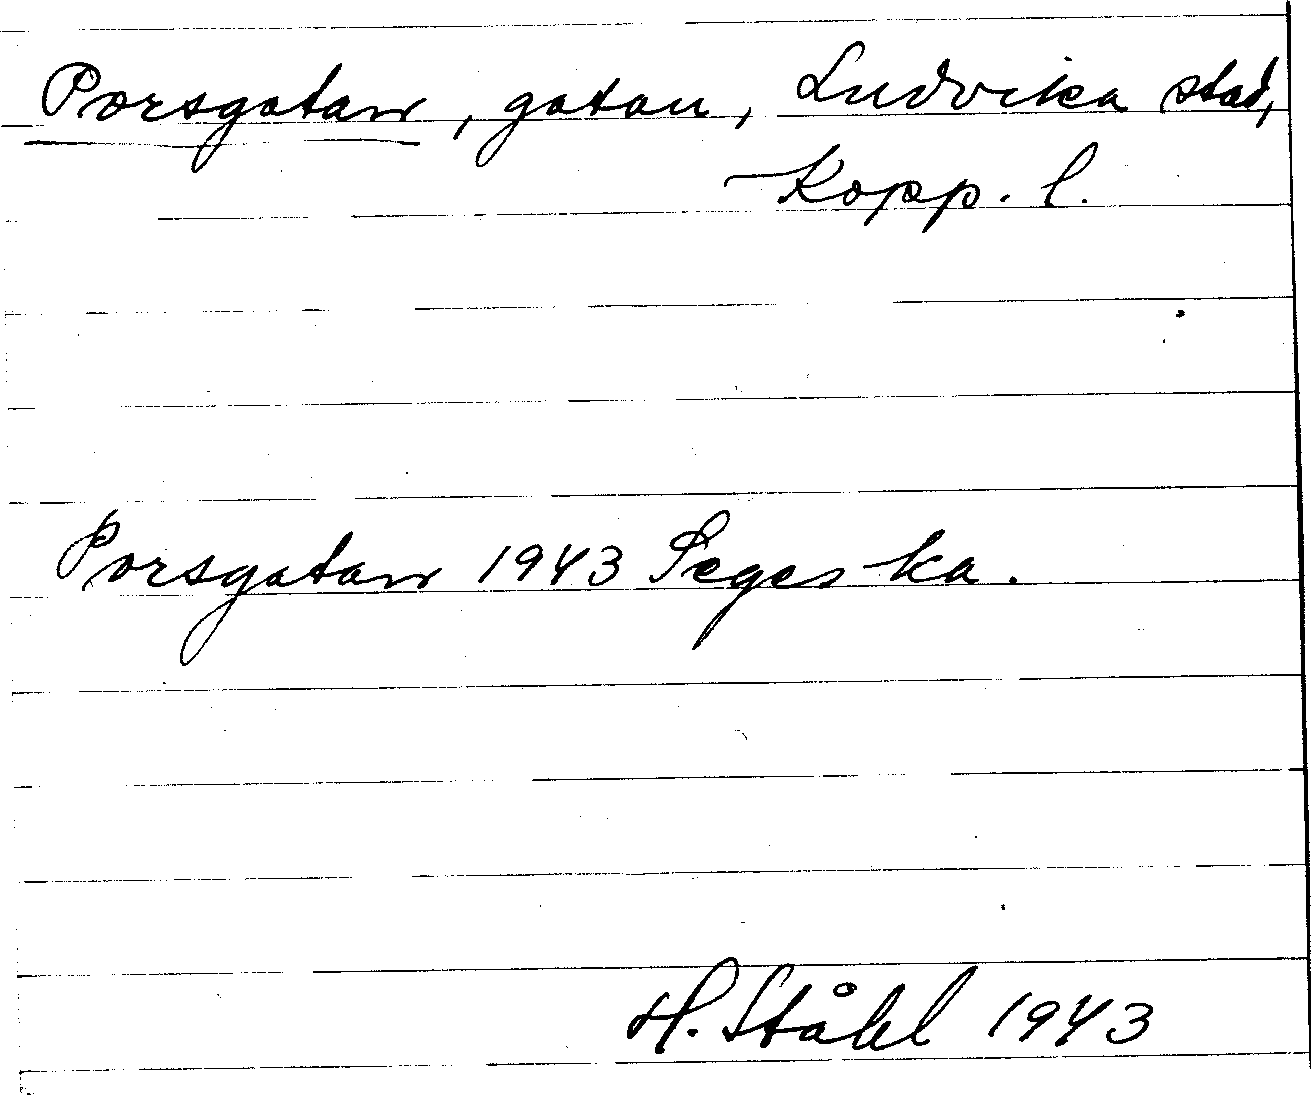 Porsgatan, gatan, Ludvika stad,
Kopp. l.
Porsgatan 1943 Seges ka.
H. Ståhl 1943